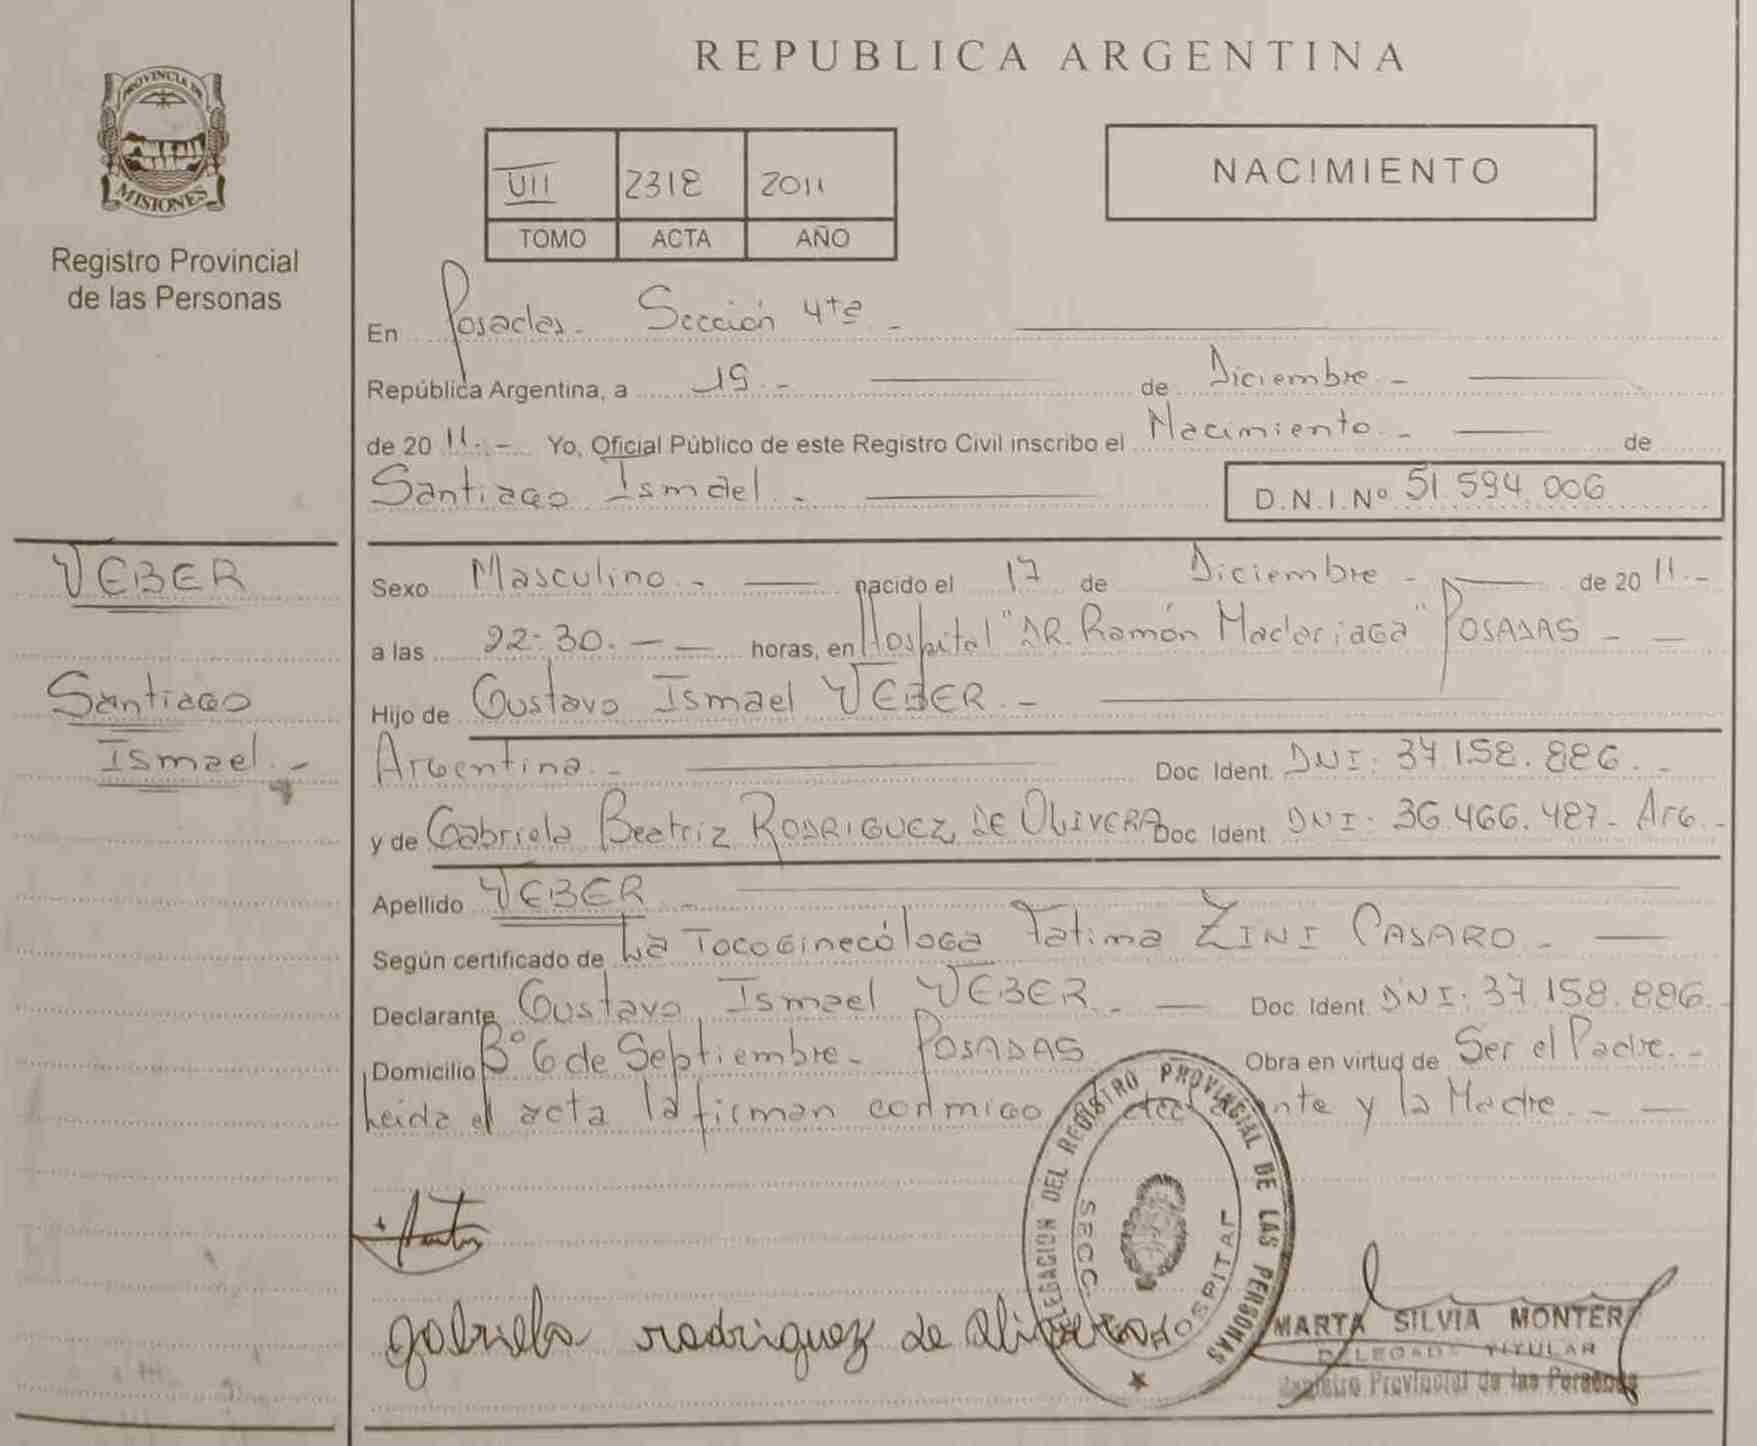 PROVINCIA DE
MISIONES
Registro Provincial
de las Personas
WEBER
Santiago
Ismael.-
REPUBLICA ARGENTINA
VII 2318 2011
TOMO ACTA AÑO
NACIMIENTO
En Posadas.- Sección 4ta.-
República Argentina, a 19.- de Diciembre.-
de 2011.- Yo, Oficial Público de este Registro Civil inscribo el Nacimiento.- de
Santiago Ismael.- D.N.I.Nº 51.594.006
Sexo Masculino.- nacido el 17 de Diciembre.- de 2011.-
a las 22:30.-- horas, en Hospital "DR. Ramón Madariaga" POSADAS--
Hijo de Gustavo Ismael WEBER.-
Argentina.- Doc. Ident. DNI: 37.158.886.-
y de Gabriela Beatriz RODRIGUEZ DE OLIVERA Doc. Ident. DNI: 36.466.487- Arg.-
Apellido WEBER-
Según certificado de La Tocoginecóloga Fatima ZINI CASARO.-
Declarante Gustavo Ismael WEBER.- Doc. Ident. DNI: 37.158.886.
Domicilio Bº 6 de Septiembre- POSADAS Obra en virtud de Ser el Padre.-
Leida el acta la firman conmigo y la Madre.--
DELEGACION DEL REGISTRO PROVINCIAL DE LAS PERSONAS
SECC. HOSPITAL
gabriela rodriguez de olivera
MARTA SILVIA MONTER
DELEGADA TITULAR
Registro Provincial de las Personas